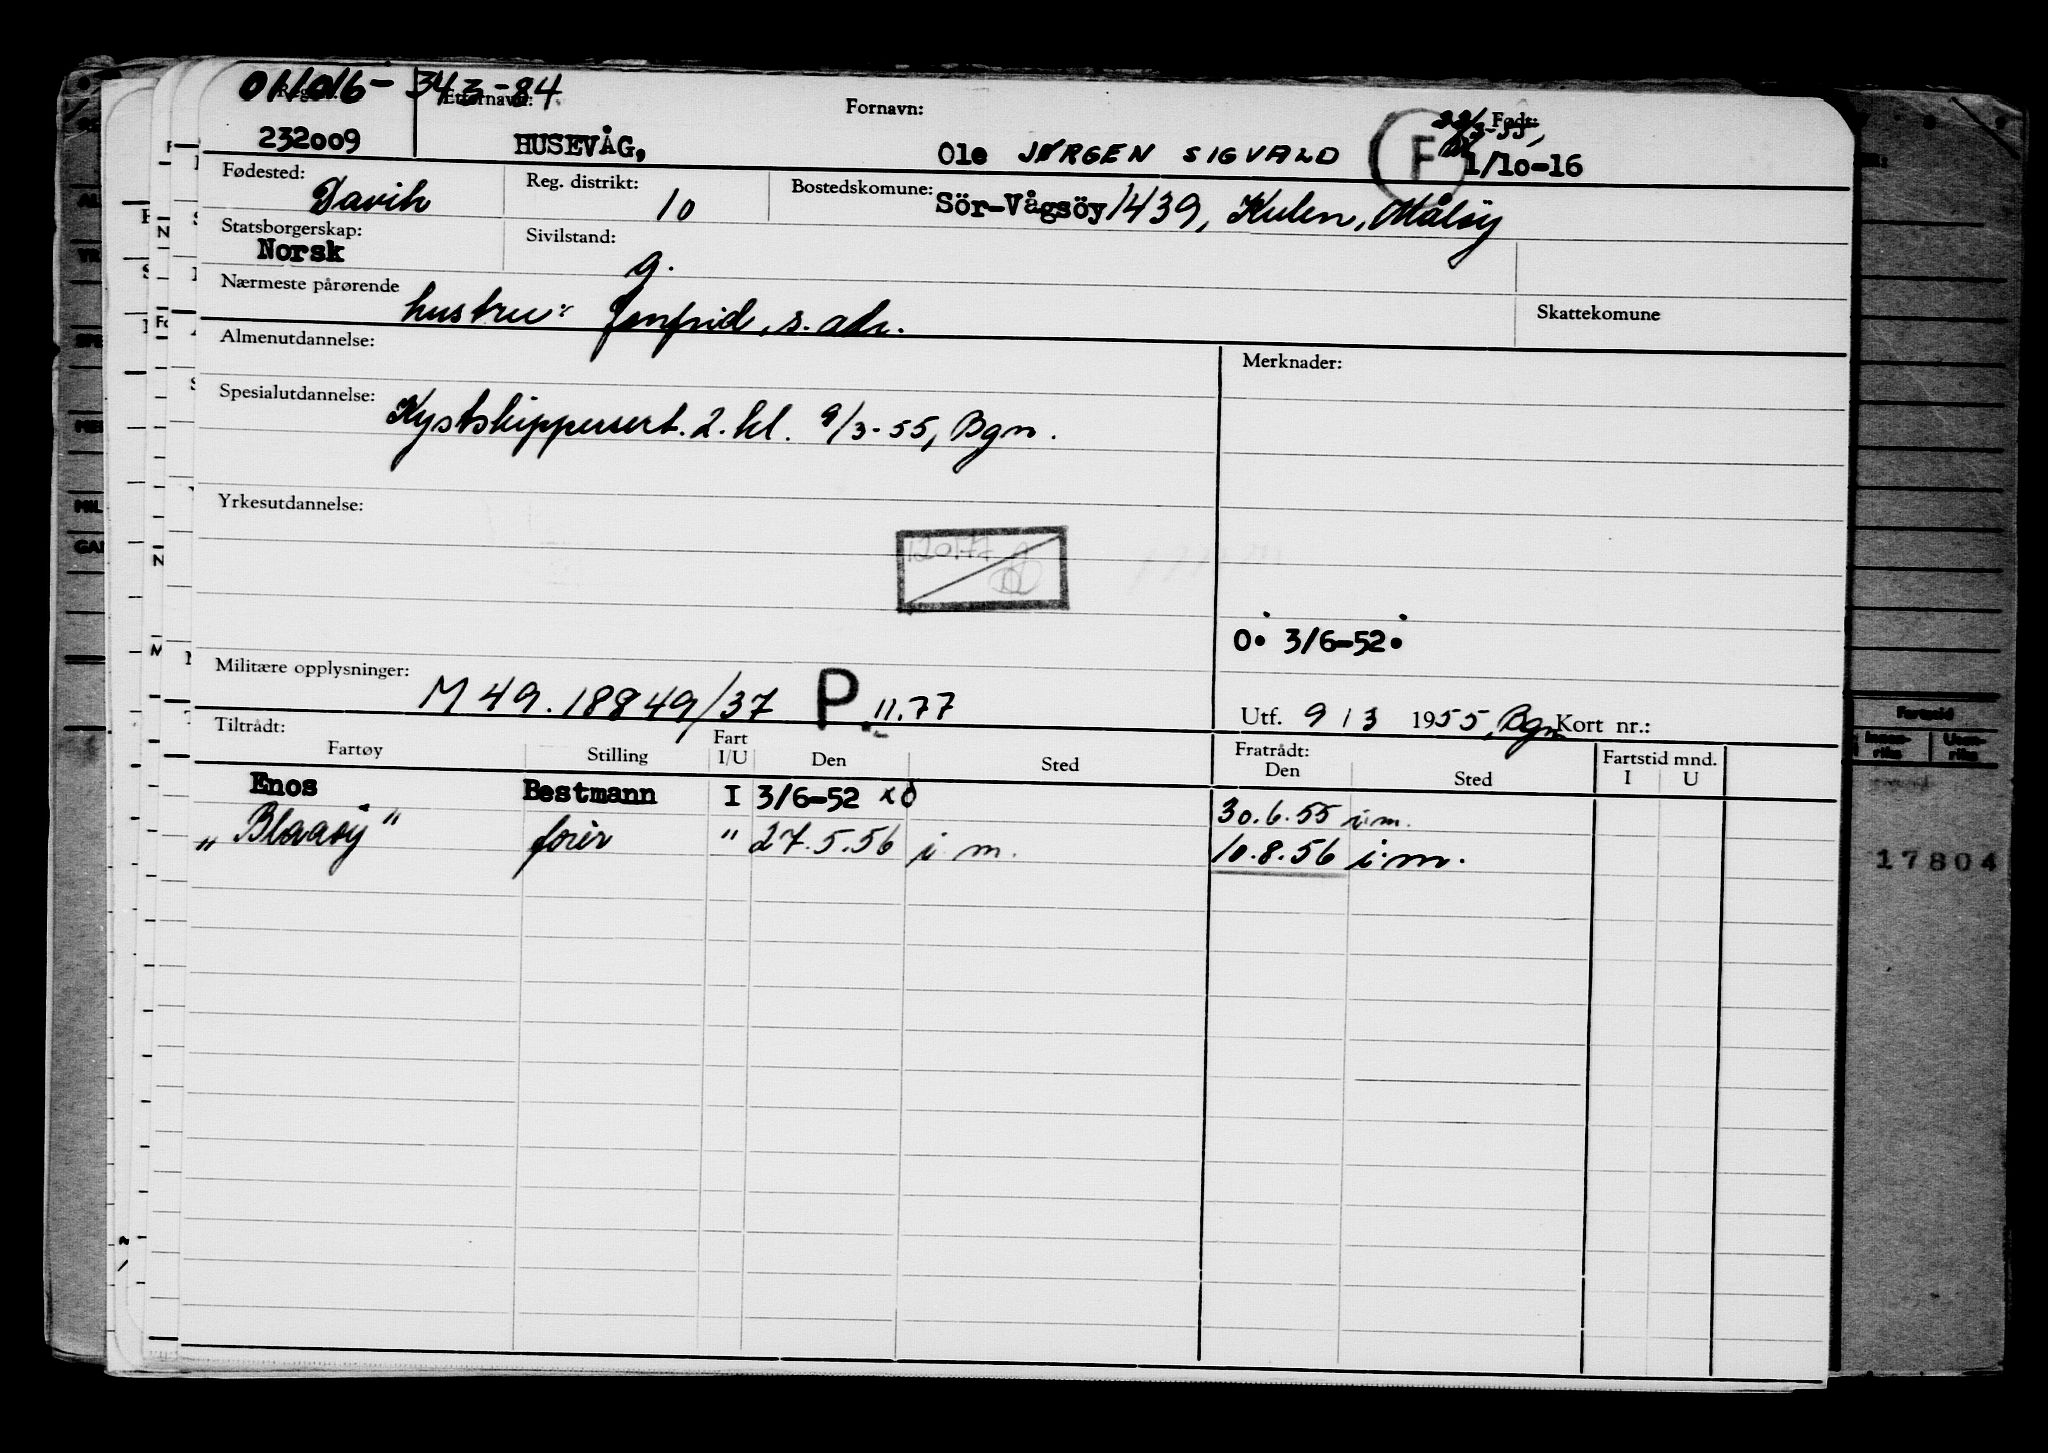 011016- 343-84
Reg. nr. Etternavn: Fornavn: Født:
232009 HUSEVÅG, Ole JØRGEN SIGVALD F 1/10-16
Fødested: Davik Reg. distrikt: 10 Bostedskomune: Sör-Vågsöy 1439, Kulen, Måløy
Statsborgerskap: Norsk Sivilstand: g.
Nærmeste pårørende hustru: Jenfrid, s. adr. Skattekomune
Almenutdannelse: Merknader:
Spesialutdannelse: Kystskippersert. 2. kl. 9/3-55, Bgn.
Yrkesutdannelse:
O. 3/6-52.
Militære opplysninger: M 49. 18849/37 P. 11.77
Utf. 9 / 3 1955, Bgn Kort nr.:
Tiltrådt: Fratrådt:
Fartøy Stilling Fart I/U Den Sted Den Sted Fartstid mnd. I U
Enos Bestmann I 3/6-52 x O 30.6.55 i.m.
„Blaaøy" fører " 27.5.56 i.m. 10.8.56 i.m.
17804